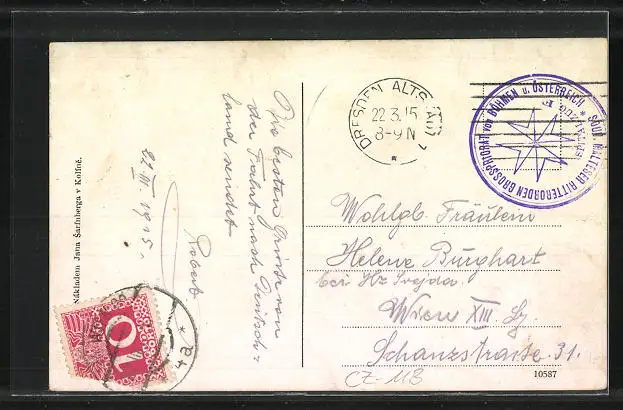 Die besten Grüsse von
der Fahrt nach Deutsch-
land sendet
Robert
21/III. 1915.
Nákladem Jana Šarlnberga v Kolíně.
10
4a
DRESDEN ALTSTADT
22.3.15
8-9 N
*
SOUV. MALTESER RITTERORDEN GROSSPRIORAT von BÖHMEN u. ÖSTERREICH *
Wohlgb. Fräulein
Helene Burghart
bei Hr Svejda
Wien XIII. Bz.
Schanzstrasse 31.
CZ-118
10587